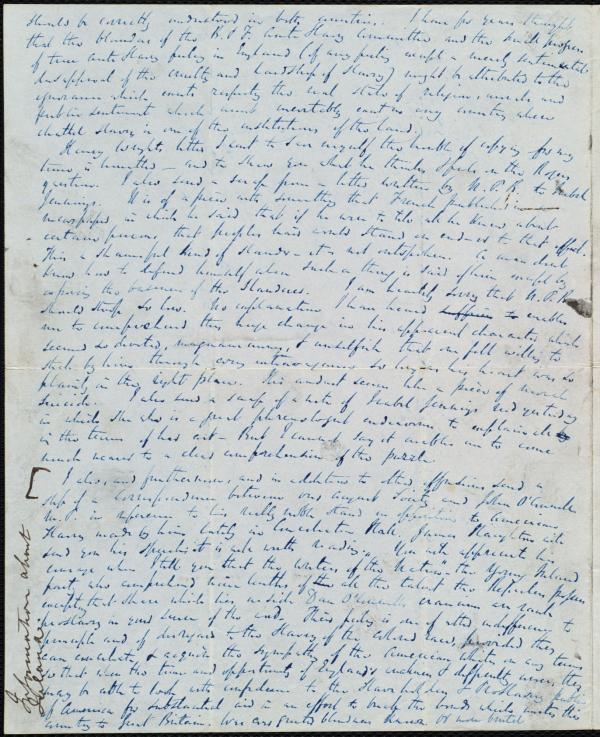 should be correctly understood in both countries. I have for years thought
that the blunders of the B. & F. Anti-Slavery Committee and the small progress
of true anti Slavery feeling in England (if any feeling except a merely sentimental
disapproval of the cruelty and hardship of Slavery) might be attributed to the
ignorance which exists respecting the real state of religion, morals, and
public sentiment which must inevitably exist in any country where
chattel slavery is one of the institutions of the land.
Henry Wright's letter I want to save myself the trouble of copying for my
time is limited — and to show you what he thinks & feels on the Rogers
question. I also send a scrap from a letter written by N. P. R. to Isabel
Jennings. It is of a piece with something that French published in
newspaper in which he said that if he were to tell all he knew about
certain persons that people's hair would stand on end or to that effect.
This a shameful kind of slander — it is not outspoken. No man can
know how to defend himself when such a thing is said of him except by
exposing the baseness of the slanderer. I am heartily sorry that N. P. R.
should stoop so low. No explanation I have heard enables
me to comprehend this huge change in his apparent character which
seemed so devoted, magnanimous, & unselfish that one felt willing to
stick by him through every extravagance so long as his heart was so
plainly in the right place. His conduct seems like a piece of moral
suicide. I also send a scrap of a note of Isabel Jennings recd yesterday
in which she who is a great phrenologist endeavours to explain it
in the terms of her art — But I cannot say it enables me to come
much nearer to a clear comprehension of the puzzle.
I also, and furthermore, and in addition to other effusions send a
slip of a correspondence between our august Society and John O'Connell
M.P. in reference to his really noble stand in opposition to American
Slavery made by him lately in Conciliation Hall. James Haughton will
send you his Speech — it is well worth reading. You will appreciate his
courage when I tell you that the writers of the "Nation" the Young Ireland
party who comprehend nine tenths of all the talent the Repealers possess
except that share which lies inside Dan O'Connell's cranium are much
proslavery in your sense of the word. Their policy is one of utter indifference to
principle and of disregard to the Slavery of the colored race, provided they
can conciliate & acquire the sympathy of the Americans which in any terms
so that when the time and opportunity of England's weakness & difficulty arrives, they
may be able to look with confidence to the Slave holding & ProSlavery public
of America for substantial aid in an effort to break the bonds which unites this
country to Great Britain. Was ever greater blindness known or more brutal
Information about
Ireland.